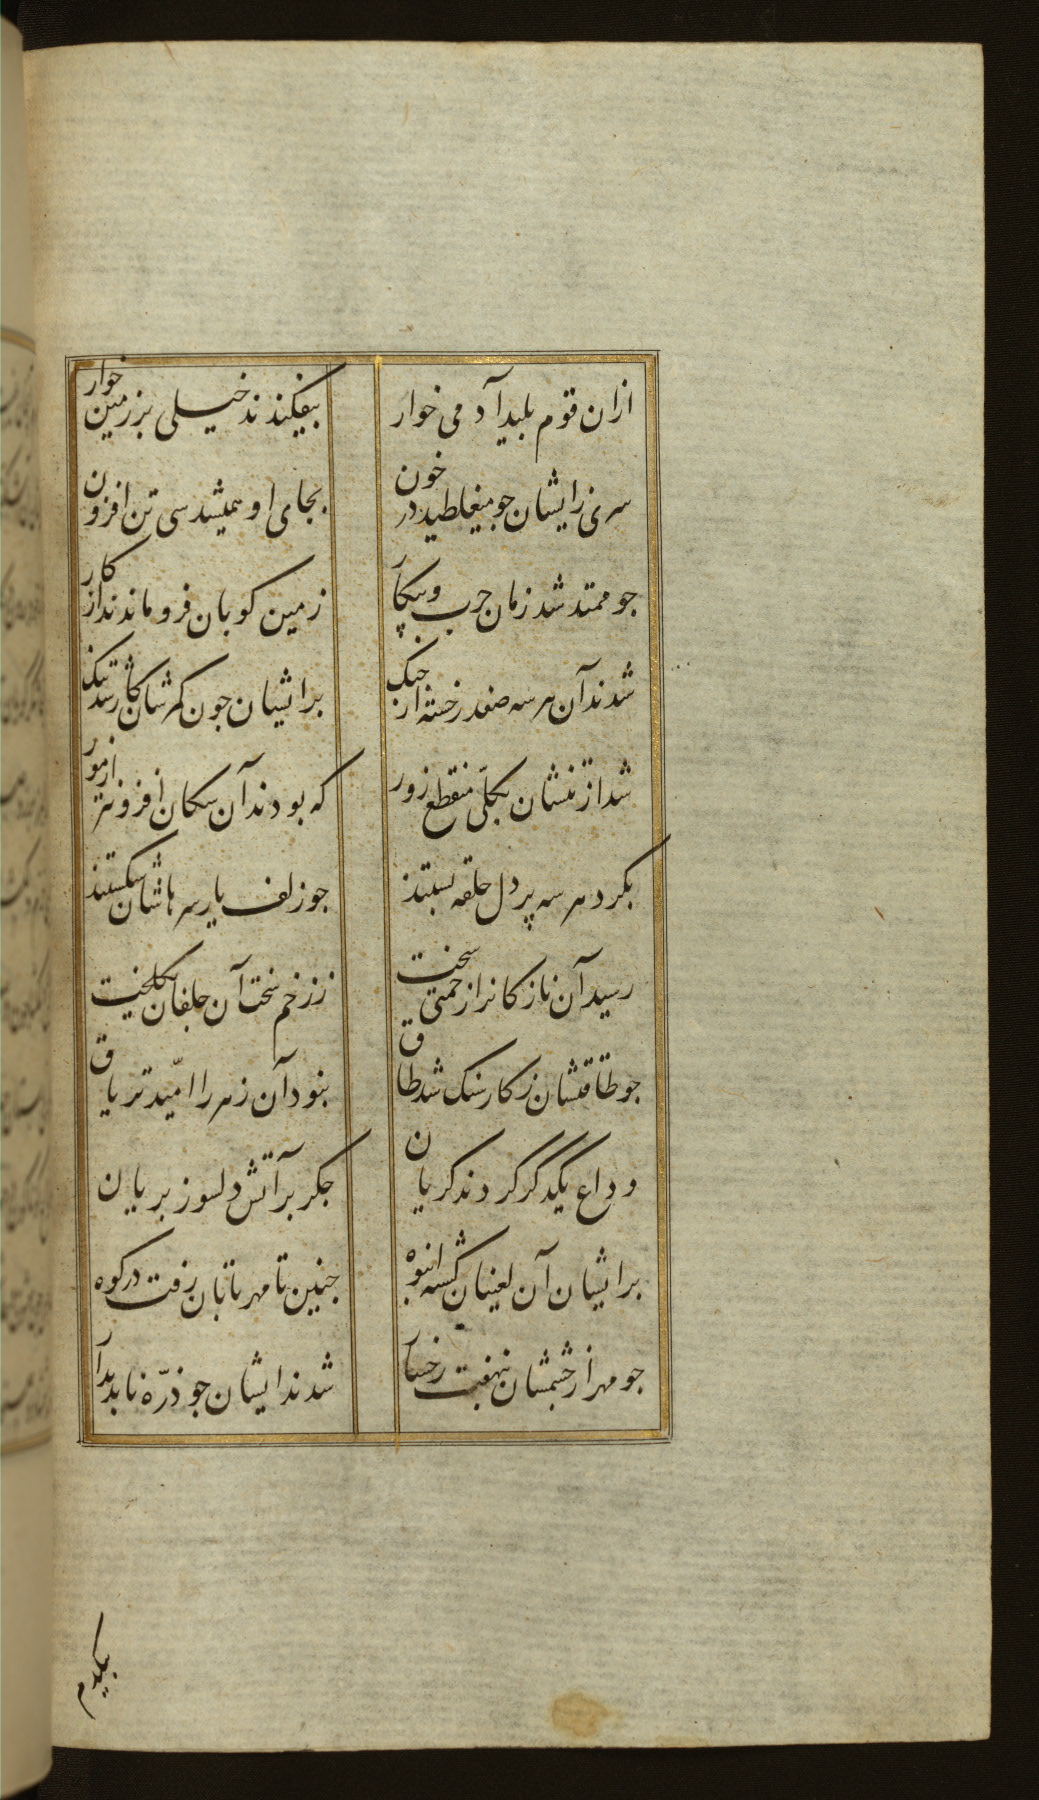 ازان قوم پلید آدمی خوار
بیفکندند خیلی بر زمین خوار
سری زایشان جو میغلطید در خون
بجای او همیشد سی تن افزون
جو ممتد شد زمان حرب و پیکار
زمین کوبان فرو ماندند از کار
شدند آن هر سه صفدر خسته از جنک
برایشان جون کمر شد تنک
شد از تنشان بکلّی منقطع زور
که بودند آن سکان افزونتر از مور
بکرد هر سه پر دل حلقه بستند
جو زلف یار سرهاشان شکستند
رسید آن نازکانرا زحمتی سخت
ز زخم سخت آن جلفان
جو طاقتشان ز کار سنک شد طاق
بنود آن زهر را امّید تریاق
وداع یکدکر کردند کریان
جکر بر آتش دلسوز بریان
برایشان آن لعینان کشته انبوه
جنین تا مهر تابان رفت در کوه
جو مهر از جشمشان بنهفت رخسار
شدند ایشان جو ذرّه نابدیدار
بیکدم